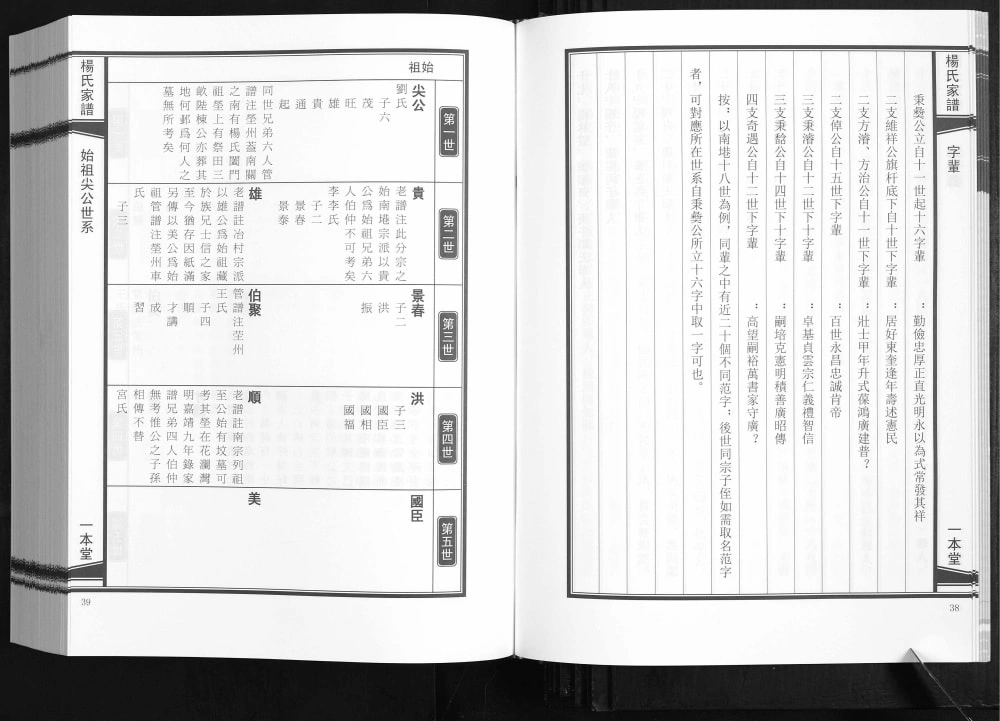 楊氏家譜
字輩
一本堂
38
秉彜公立自十一世起十六字輩：勤儉忠厚正直光明永以為式常發其祥
二支維祥公旗杆底下自十世下字輩：居好東奎逢年壽述憲民
二支方濬、方治公自十一世下字輩：壯士甲年升式葆鴻廣建普？
二支倬公自十五世下字輩：百世永昌忠誠肯帝
三支秉濬公自十二世下十字輩：卓基貞雲宗仁義禮智信
三支秉馠公自十四世下十字輩：嗣培克憲明積善廣昭傳
四支奇遇公自十二世下字輩：高望嗣裕萬書家守廣？
按：以南塂十八世為例，同輩之中有近二十個不同范字；後世同宗子侄如需取名范字
者，可對應所在世系自秉彜公所立十六字中取一字可也。
楊氏家譜
始祖尖公世系
一本堂
39
始祖
第一世
尖公
劉氏
子六
茂
旺
雄
貴
通
起
同世兄弟六人管
譜注塋州蓋南關
之南有楊氏闔門
祖塋上有祭田三
畝陡棟公亦葬其
地何邨爲何人之
墓無所考矣
第二世
貴
老譜注此分宗之
始南塂宗派以貴
公爲始祖兄弟六
人伯仲不可考矣
李李氏
子二
景春
景泰
雄
老譜註冶村宗派
以雄公爲始祖藏
於族兄士信之家
至今猶存因紙滿
另傳以美公爲始
祖管譜注塋州車
氏
子三
第三世
景春
子二
洪
振
伯聚
管譜注茔州
王氏
子四
順
才講
成
習
第四世
洪
子三
國臣
國相
國福
順
老譜註南宗列祖
至公始有坟墓可
考其塋在花瀾灣
明嘉靖九年錄家
譜兄弟四人伯仲
無考惟公之子孫
相傳不替
宮氏
第五世
國臣
美